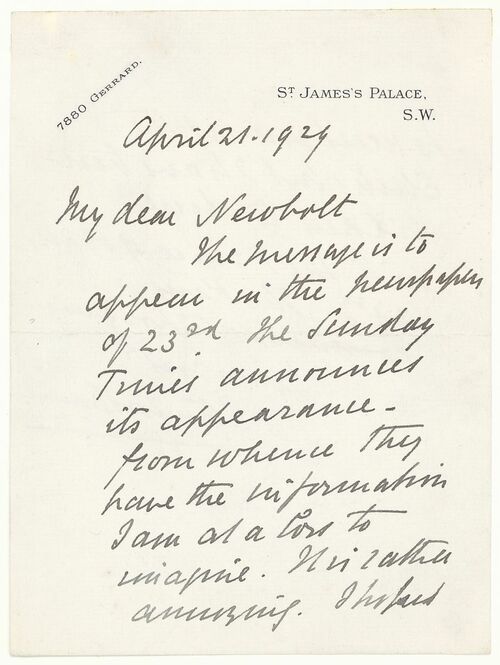 7880 GERRARD.
ST JAMES'S PALACE,
S.W.
April 21. 1929
My dear Newbolt
The message is to
appear in the newspapers
of 23rd The Sunday
Times announces
its appearance -
from whence they
have the information
I am at a loss to
imagine. It is rather
annoying. I hoped